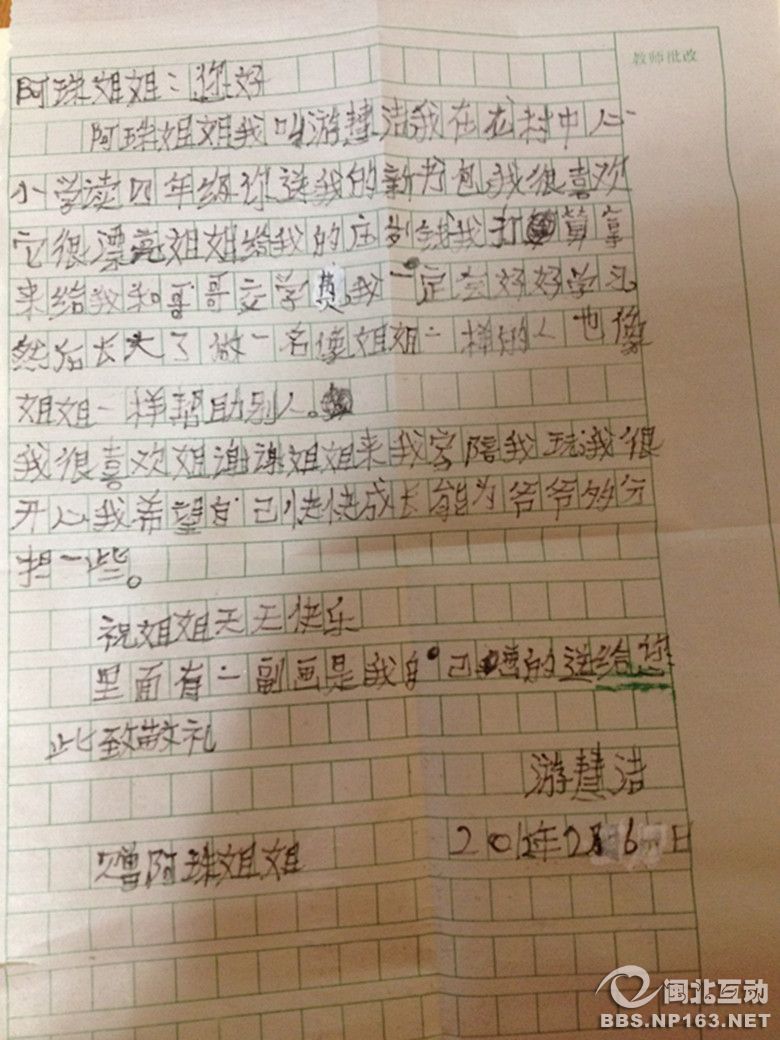 教师批改
阿珠姐姐：您好
阿珠姐姐我叫游慧洁我在村中心
小学读四年级你送我的新书包我很喜欢
它很漂亮姐姐给我的压岁钱我打算拿
来给我和哥哥交学费我一定会好好学习
然后长大了做一名像姐姐一样的人也像
姐姐一样帮助别人。
我很喜欢姐谢谢姐姐来我家陪我玩我很
开心我希望自己快快成长能为爷爷多分
担一些。
祝姐姐天天快乐
里面有一副画是我自己画的送给您
此致敬礼
游慧洁
2012年2月6日
赠阿珠姐姐
闽北互动
BBS.NP163.NET